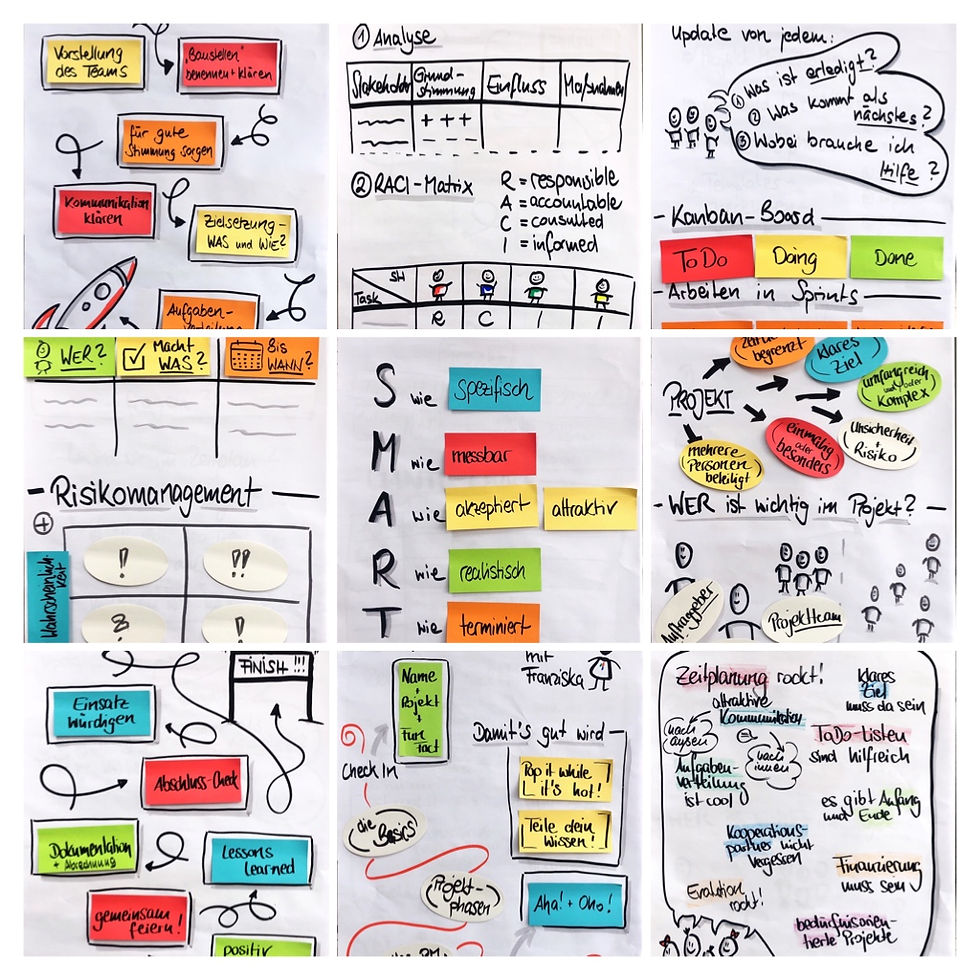 Vorstellung
des Teams
"Baustellen"
benennen + klären
für gute
Stimmung sorgen
Kommunikation
klären
Zielsetzung -
WAS und WIE?
Aufgaben-
① Analyse
Stakeholder
Grund-
stimmung
Einfluss
Maßnahmen
+ ++
② RACI-Matrix
R = responsible
A = accountable
C = consulted
I = informed
SH
Task
R
C
I
I
Update von jedem:
① Was ist erledigt?
② Was kommt als
nächstes?
③ Wobei brauche ich
Hilfe?
- Kanban-Board
ToDo
Doing
Done
- Arbeiten in Sprints
WER?
Macht
WAS?
Bis
WANN?
- Risikomanagement -
+
Wahrscheinlich-
keit
!
!!
?
!
S wie spezifisch
M wie messbar
A wie akzeptiert attraktiv
R wie realistisch
T wie terminiert
begrenzt
klares
Ziel
PROJEKT
umfangreich
und/oder
Komplex
mehrere
Personen
beteiligt
einmalig
oder
besonders
Unsicherheit
+
Risiko
- WER ist wichtig im Projekt? -
Auftraggeber
Projektteam
FINISH !!!
Einsatz
würdigen
Abschluss-Check
Dokumentation
+ Abrechnung
Lessons
learned
gemeinsam
feiern!
positiv
Name
+
Projekt
+
Fun
Fact
Check In
mit
Franziska
Damit's gut wird -
Pop it while
it's hot!
Teile dein
Wissen!
die Basics
Projekt-
phasen
Aha! + Oho!
Zeitplanung rockt!
klares
Ziel
muss da sein
attraktive
Kommunikation
nach
außen
nach
innen
ToDo-Listen
sind hilfreich
Aufgaben-
verteilung
ist cool
es gibt Anfang
und Ende
Kooperations-
partner nicht
vergessen
Finanzierung
muss sein
Evaluation
rockt!
bedürfnisorien-
tierte Projekte